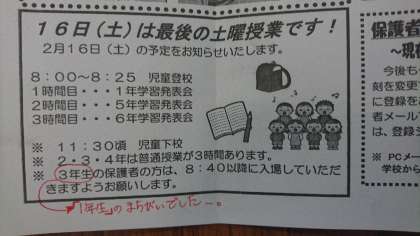 16日(土)は最後の土曜授業です!
2月16日(土)の予定をお知らせいたします。
8:00~8:25 児童登校
1時間目・・・1年学習発表会
2時間目・・・5年学習発表会
3時間目・・・6年学習発表会
※ 11:30頃 児童下校
※ 2・3・4年は普通授業が3時間あります。
※ 3年生の保護者の方は、8:40以降に入場していただ
きますようお願いします。
「1年生」のまちがいでした…。
保護者
~現在
今後も
刻を変更
に登録を
者メール
は、登録
※ PCメー
学校から